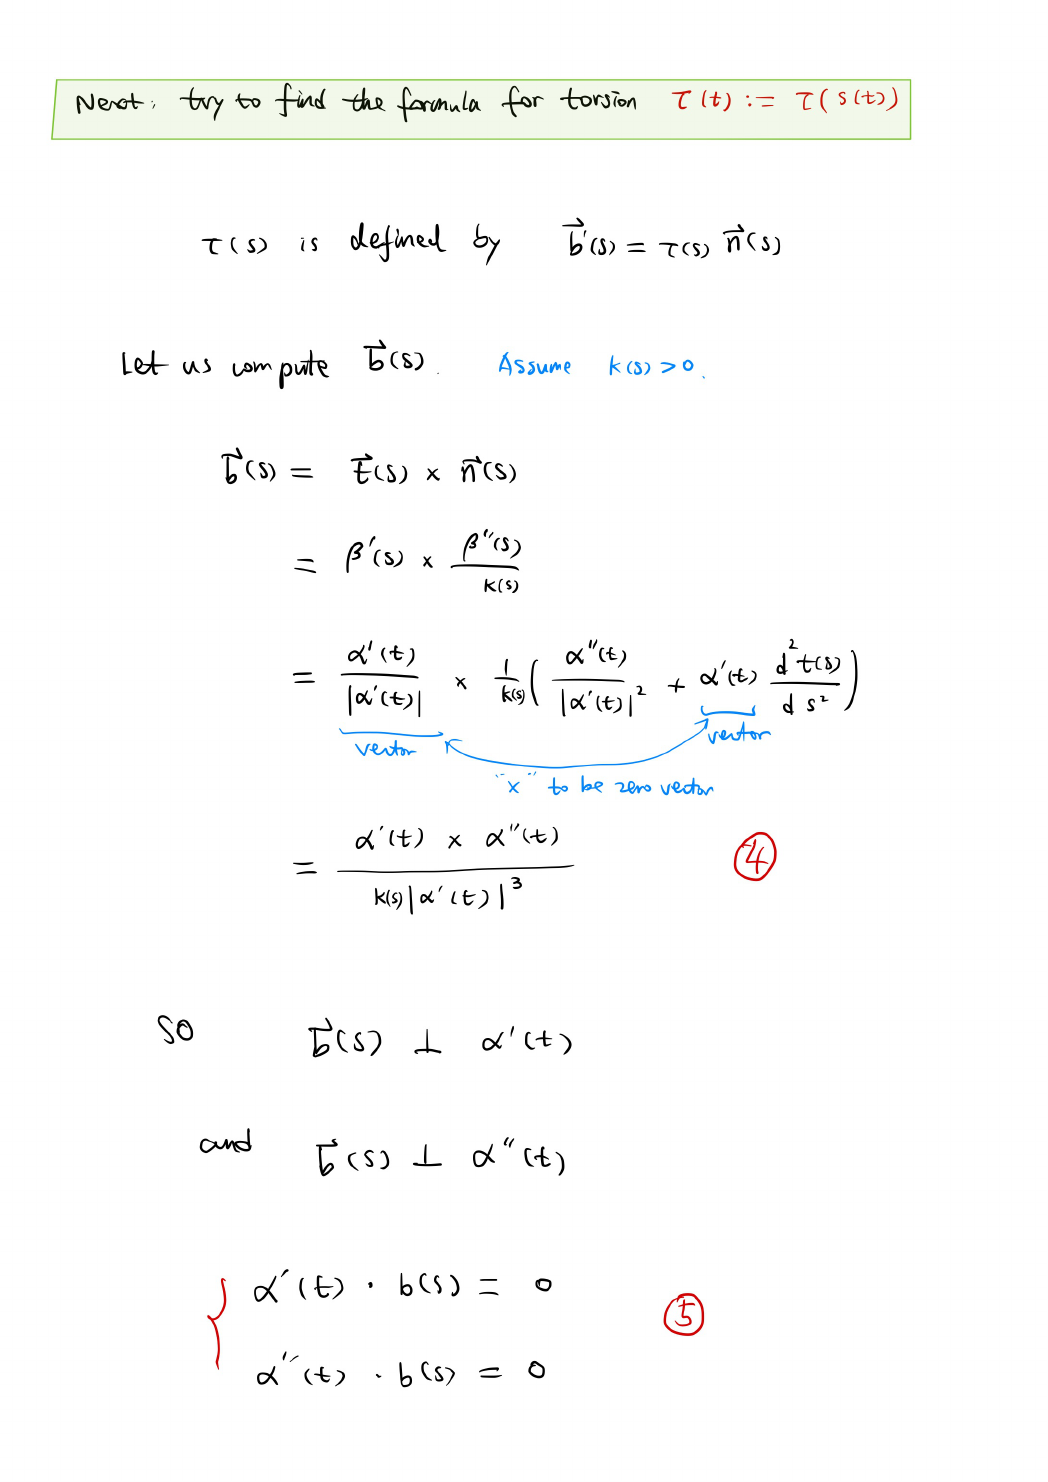 Next: try to find the formula for torsion τ(t) := τ(s(t))
τ(s) is defined by b⃗'(s) = τ(s) n⃗(s)
Let us compute b⃗(s). Assume k(s) > 0.
b⃗(s) = t⃗(s) × n⃗(s)
= β'(s) × β''(s) / k(s)
= α'(t) / |α'(t)| × 1/k(s) ( α''(t) / |α'(t)|² + α'(t) d²t(s) / ds² )
vector vector
"×" to be zero vector
= α'(t) × α''(t) / k(s)|α'(t)|³ ④
So b⃗(s) ⊥ α'(t)
and b⃗(s) ⊥ α''(t)
{ α'(t) · b(s) = 0
α''(t) · b(s) = 0 ⑤